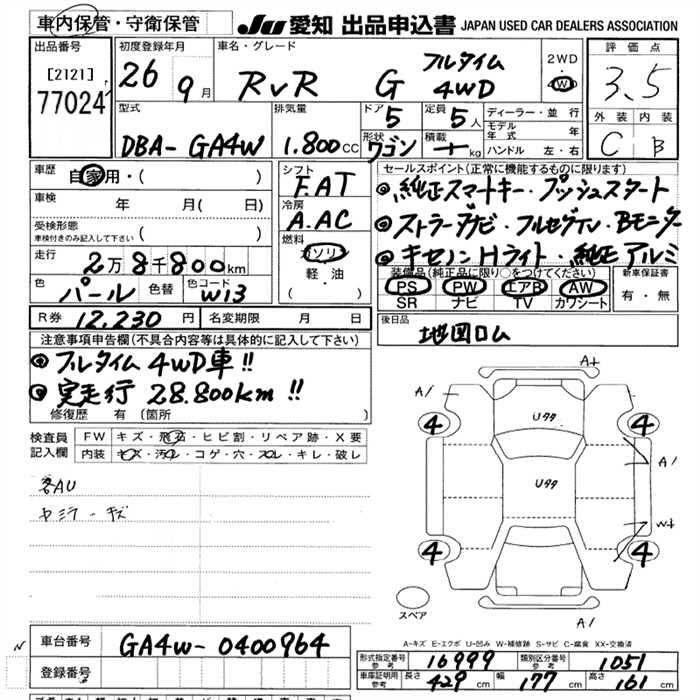 車内保管・守衛保管
JU 愛知 出品申込書 JAPAN USED CAR DEALERS ASSOCIATION
出品番号
[2121]
77024
初度登録年月
26 9月
車名・グレード
RVR G フルタイム 4WD
2WD
4WD
評価点
3.5
外装 内装
C B
型式
DBA- GA4W
排気量
1.800cc
ドア 5
定員 5人
形状 ワゴン
積載 kg
ディーラー・並行
モデル年式 年
ハンドル 左・右
車歴
自家用・( )
車検
年 月( 日)
受検形態
車検付きのみ記入して下さい ( )
走行
2万8千800km
色
パール
色替
色コード
W13
シフト
F.AT
冷房
A.AC
燃料
ガソリン
軽・油
( )
セールスポイント(正常に機能するものに限ります)
◎純正スマートキー・プッシュスタート
◎ストラーダナビ・フルセグTV・Bモニター
◎キセノンHライト・純正アルミ
装備品(純正品に限り○をつけてください)
PS PW エアB AW
SR ナビ TV カワシート
新車保証書
有・無
R券 12,230円
名変期限 月 日
後日品
地図ロム
注意事項申告欄(不具合内容等は具体的に記入して下さい)
◎フルタイム4WD車!!
◎実走行 28.800km!!
修復歴 有 (箇所
検査員記入欄
FW キズ・飛石・ヒビ割・リペア跡・X要
内装 キズ・汚れ・コゲ・穴・スレ・キレ・破レ
各AU
A+
A/
4
4
Uタタ
A/
Uタタ
W+
4
4
スペア
A/
A-キズ E-エクボ U-凹み W-補修跡 S-サビ C-腐食 XX-交換済
車台番号
GA4W- 0400964
登録番号
形式指定番号 参考 16999
類別区分番号 参考 1051
車庫証明用 参考 長さ 429cm 幅 177cm 高さ 161cm